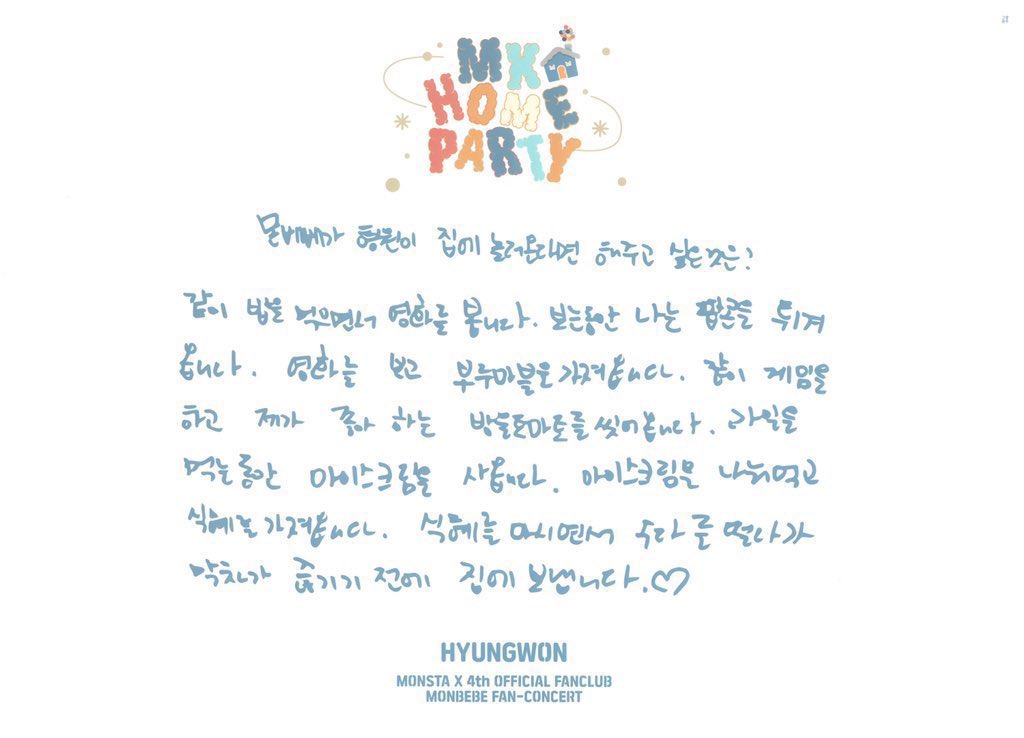 MX
HOME
PARTY
몬베베가 형원이 집에 놀러온다면 해주고 싶은것은?
같이 밥을 먹으면서 영화를 봅니다. 보는동안 나는 팝콘을 튀겨
옵니다. 영화를 보고 부루마블을 가져옵니다. 같이 게임을
하고 제가 좋아 하는 방울토마토를 씻어옵니다. 과일을
먹는동안 아이스크림을 사옵니다. 아이스크림을 나눠먹고
식혜를 가져옵니다. 식혜를 마시면서 수다를 떨다가
막차가 끊기기 전에 집에 보냅니다.♡
HYUNGWON
MONSTA X 4th OFFICIAL FANCLUB
MONBEBE FAN-CONCERT